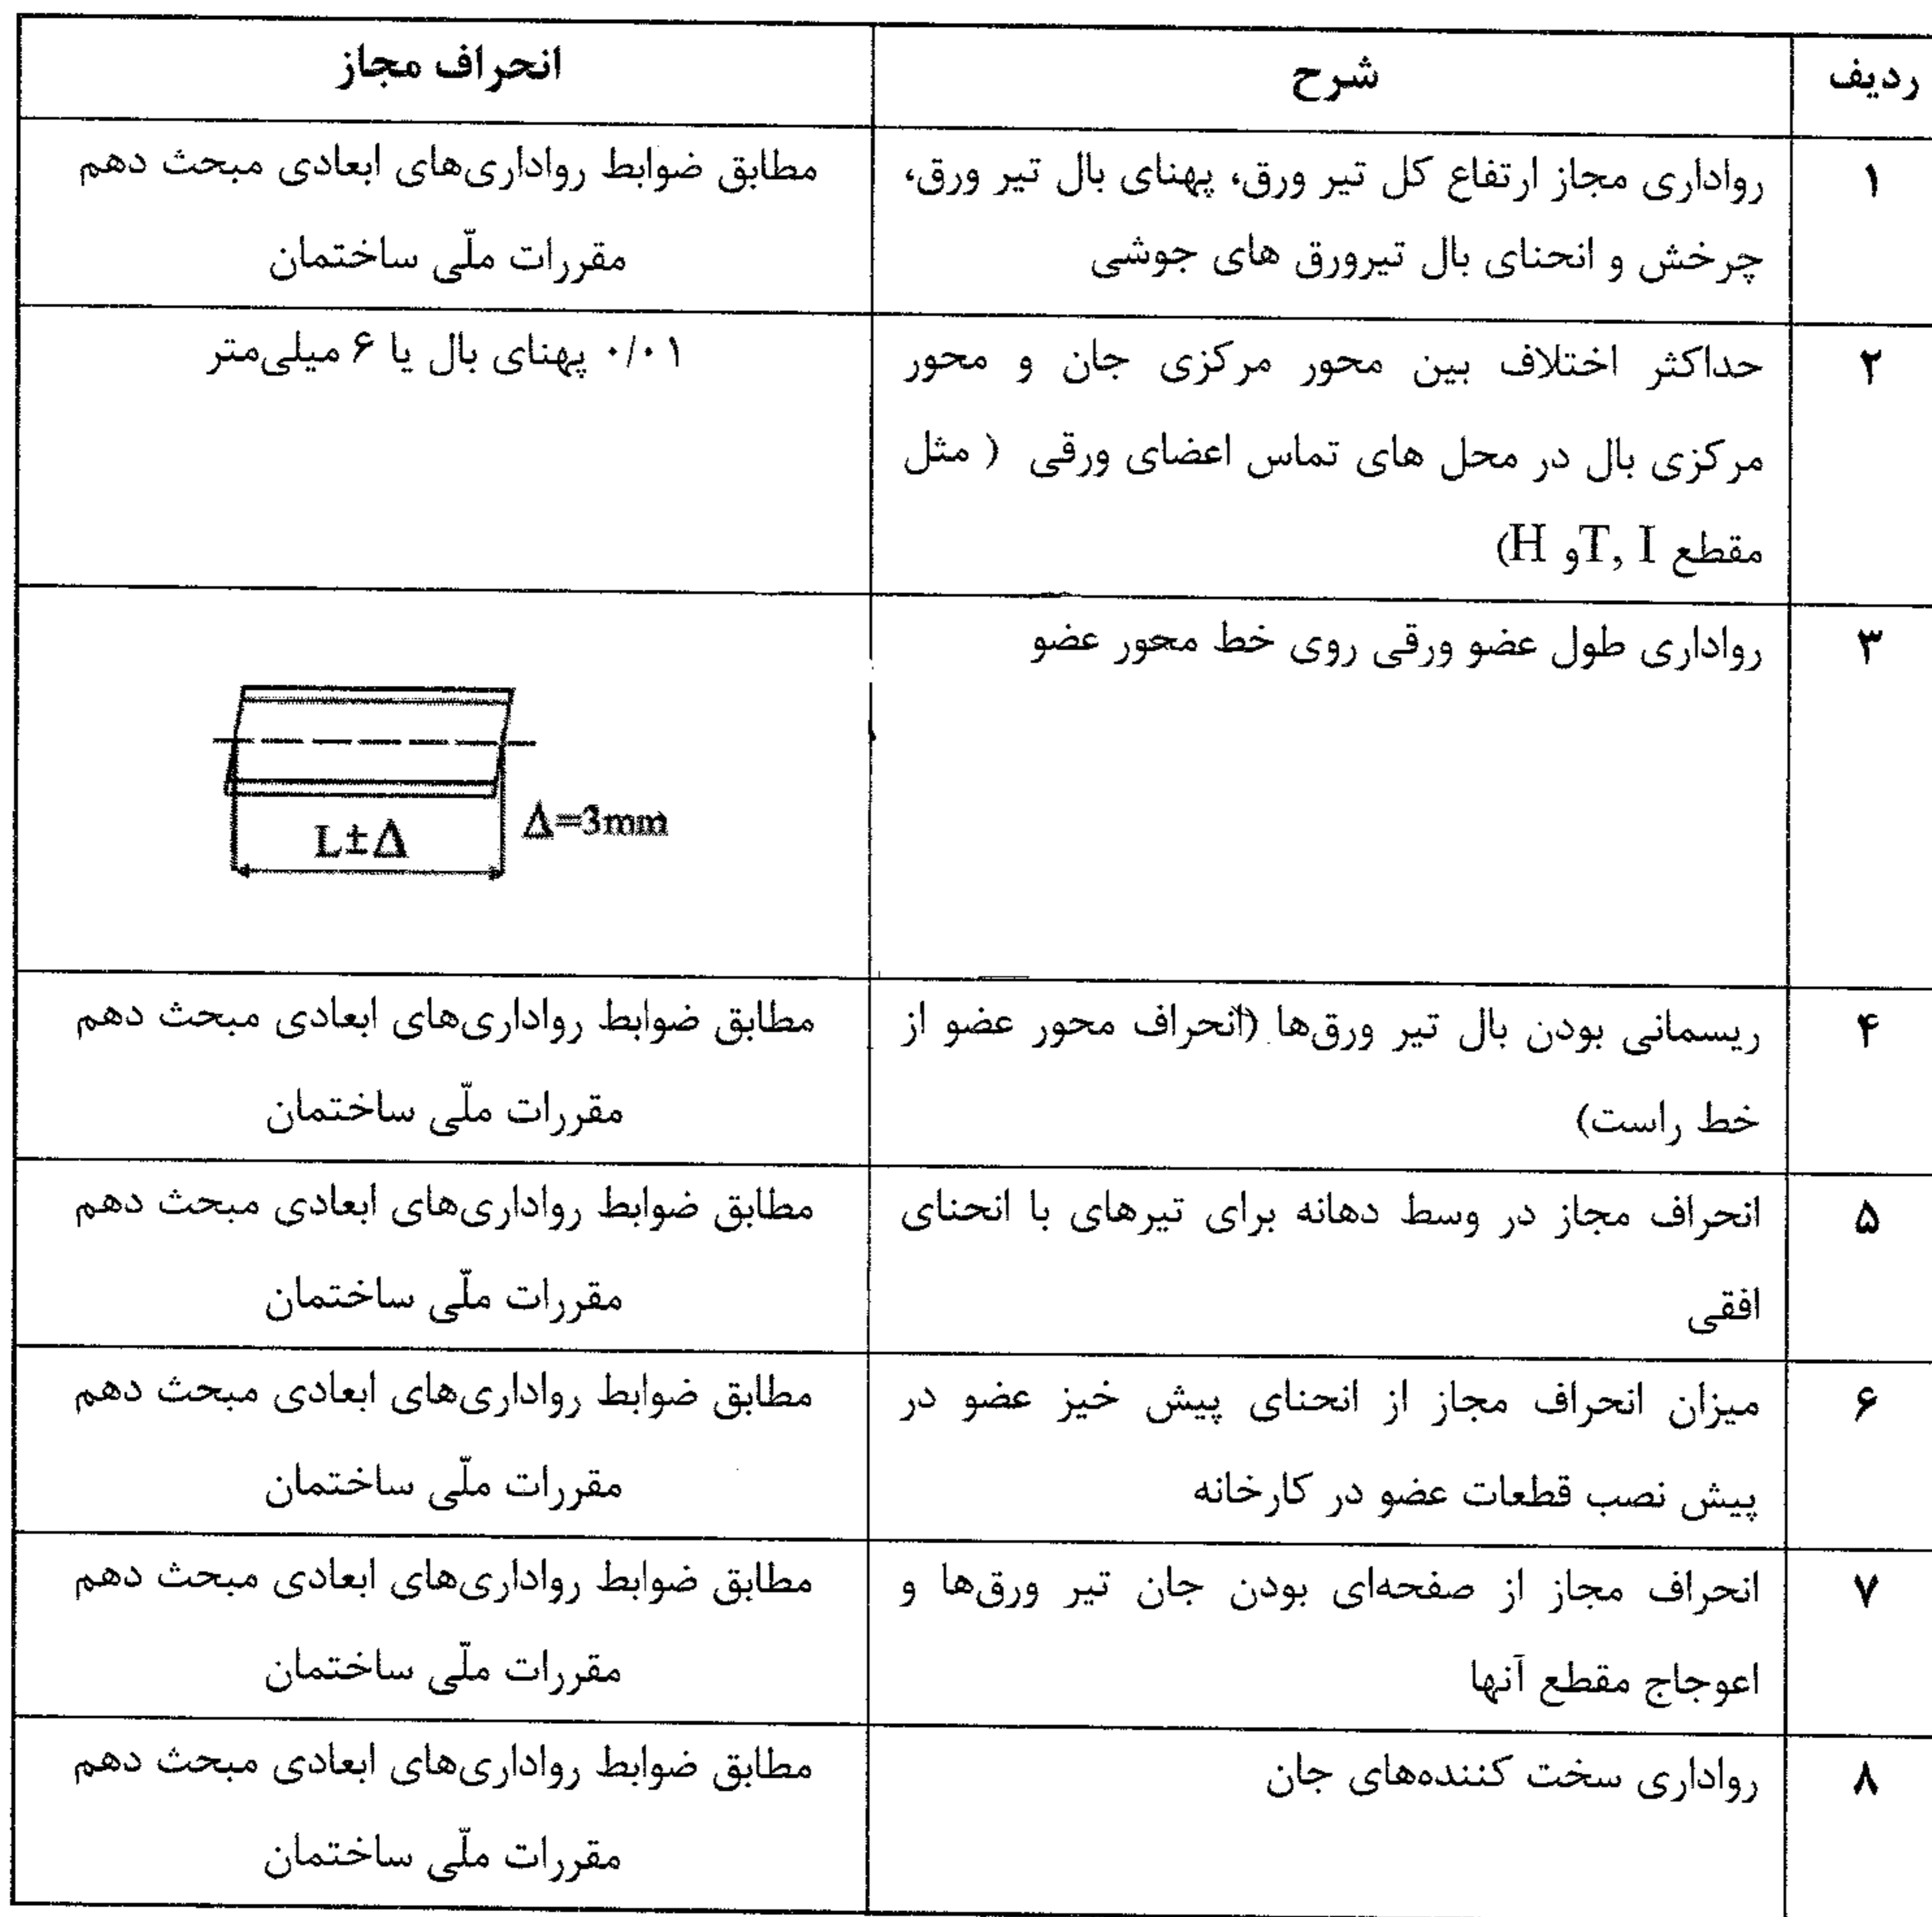 ردیف
شرح
انحراف مجاز
۱
رواداری مجاز ارتفاع کل تیر ورق، پهنای بال تیر ورق،
چرخش و انحنای بال تیرورق های جوشی
مطابق ضوابط رواداری‌های ابعادی مبحث دهم
مقررات ملّی ساختمان
۲
حداکثر اختلاف بین محور مرکزی جان و محور
مرکزی بال در محل های تماس اعضای ورقی ( مثل
مقطع T, I و H)
۰/۰۱ پهنای بال یا ۶ میلی‌متر
۳
رواداری طول عضو ورقی روی خط محور عضو
L±Δ
Δ=3mm
۴
ریسمانی بودن بال تیر ورق‌ها (انحراف محور عضو از
خط راست)
مطابق ضوابط رواداری‌های ابعادی مبحث دهم
مقررات ملّی ساختمان
۵
انحراف مجاز در وسط دهانه برای تیرهای با انحنای
افقی
مطابق ضوابط رواداری‌های ابعادی مبحث دهم
مقررات ملّی ساختمان
۶
میزان انحراف مجاز از انحنای پیش خیز عضو در
پیش نصب قطعات عضو در کارخانه
مطابق ضوابط رواداری‌های ابعادی مبحث دهم
مقررات ملّی ساختمان
۷
انحراف مجاز از صفحه‌ای بودن جان تیر ورق‌ها و
اعوجاج مقطع آنها
مطابق ضوابط رواداری‌های ابعادی مبحث دهم
مقررات ملّی ساختمان
۸
رواداری سخت کننده‌های جان
مطابق ضوابط رواداری‌های ابعادی مبحث دهم
مقررات ملّی ساختمان